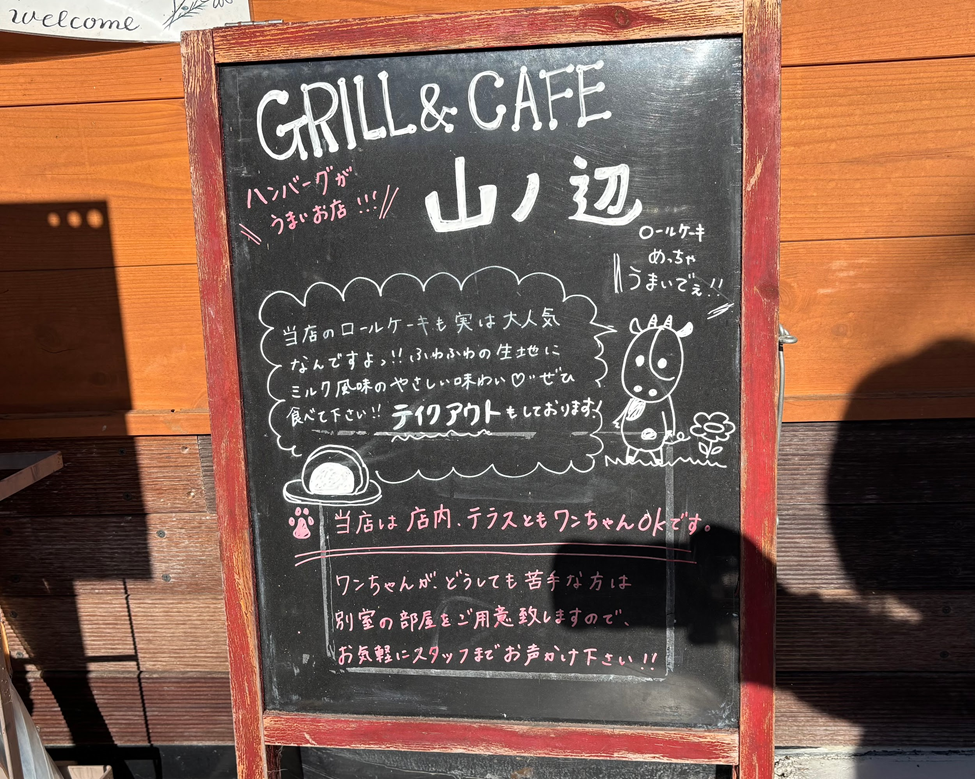 welcome
GRILL & CAFE
山ノ辺
ハンバーグが
うまいお店!!!
ロールケーキ
めっちゃ
うまいでぇ!!
当店のロールケーキも実は大人気
なんですよっ!! ふわふわの生地に
ミルク風味のやさしい味わい♡ ぜひ
食べて下さい!! テイクアウトもしております!
当店は店内、テラスともワンちゃんOkです。
ワンちゃんが、どうしても苦手な方は
別室の部屋をご用意致しますので、
お気軽にスタッフまでお声かけ下さい!!